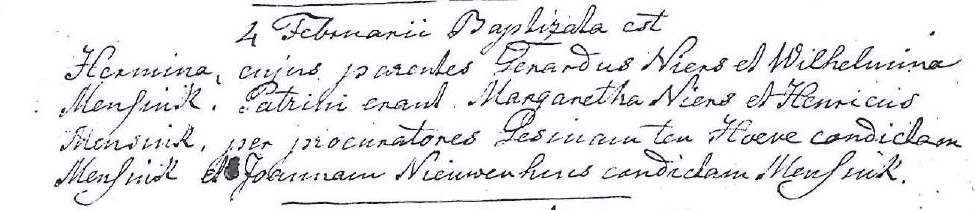 4 Februarii Baptizata est
Hermina, cujus parentes Gerardus Niers et Wilhelmina
Mensink. Patrini erant Margaretha Niers et Henricus
Mensink, per procuratores Gesinam ten Hoeve condictam
Mensink et Joannam Nieuwenhuis condictam Mensink.